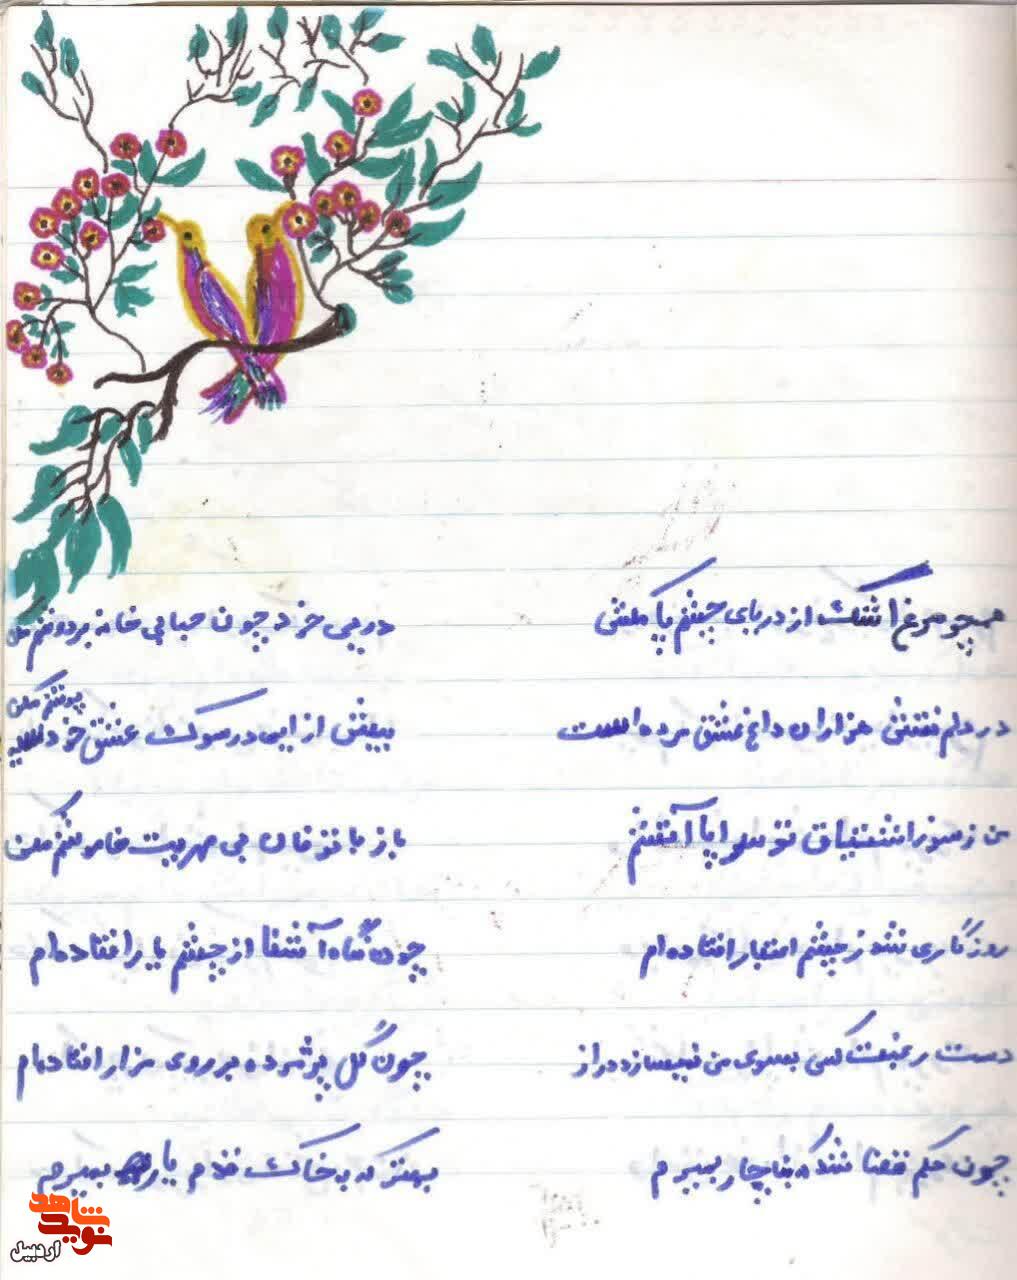 همچو مرغ اشک از دریای چشمم پا مکش در پی خود چون حبابی خانه بر دوشم مکن
در دلم نقش هزاران داغ عشق مرده است بیش از این در سوک عشق خود سیه پوشم مکن
من ز سوز اشتیاق تو سراپا آتشم باز با توفان بی مهریت خاموشم مکن
روزگاری شد ز چشم اعتبار افتاده ام چون نگاه آشنا از چشم یار افتاده ام
دست رغبت کس بسوی من نمیسازد دراز چون گل پژمرده بر روی مزار افتاده ام
چون حکم قضا شد که بناچار بمیرم بهتر که به خاک قدم یار بمیرم
نوید شاهد
اردبیل